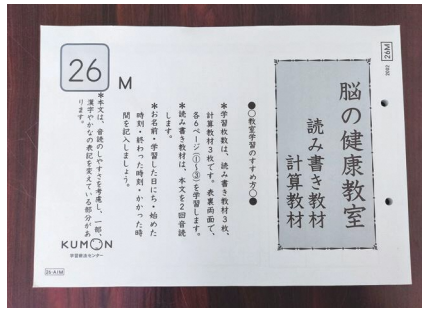 26M
2002
脳の健康教室
読み書き教材
計算教材
●○教室学習のすすめ方○●
＊学習枚数は、読み書き教材3枚、
計算教材3枚です。表裏両面で、
各6ページ(①～③)を学習します。
＊読み書き教材は、本文を2回音読
します。
＊お名前・学習した日にち・始めた
時刻・終わった時刻・かかった時
間を記入しましょう。
26 M
＊本文は、音読のしやすさを考慮し、一部、
漢字やかなの表記を変えている部分があ
ります。
KUMON
学習療法センター
26-A(M)